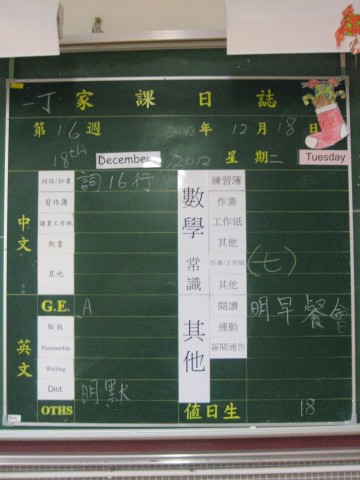 一丁 家 課 日 誌
第 16 週 2012 年 12 月 18 日
18th December, 2012 星 期 二 Tuesday
中文
詞語/抄書 詞16行
習作簿
讀書工作紙
默書
其他
英文
G.E. A
W.B.
Penmanship
Writing
Dict. 明默
OTHS
數學
練習簿
作業
工作紙
其他
常識
作業/工作紙 (七)
其他
其他
閱讀 明早餐會
運動
簽閱通告
值日生 18